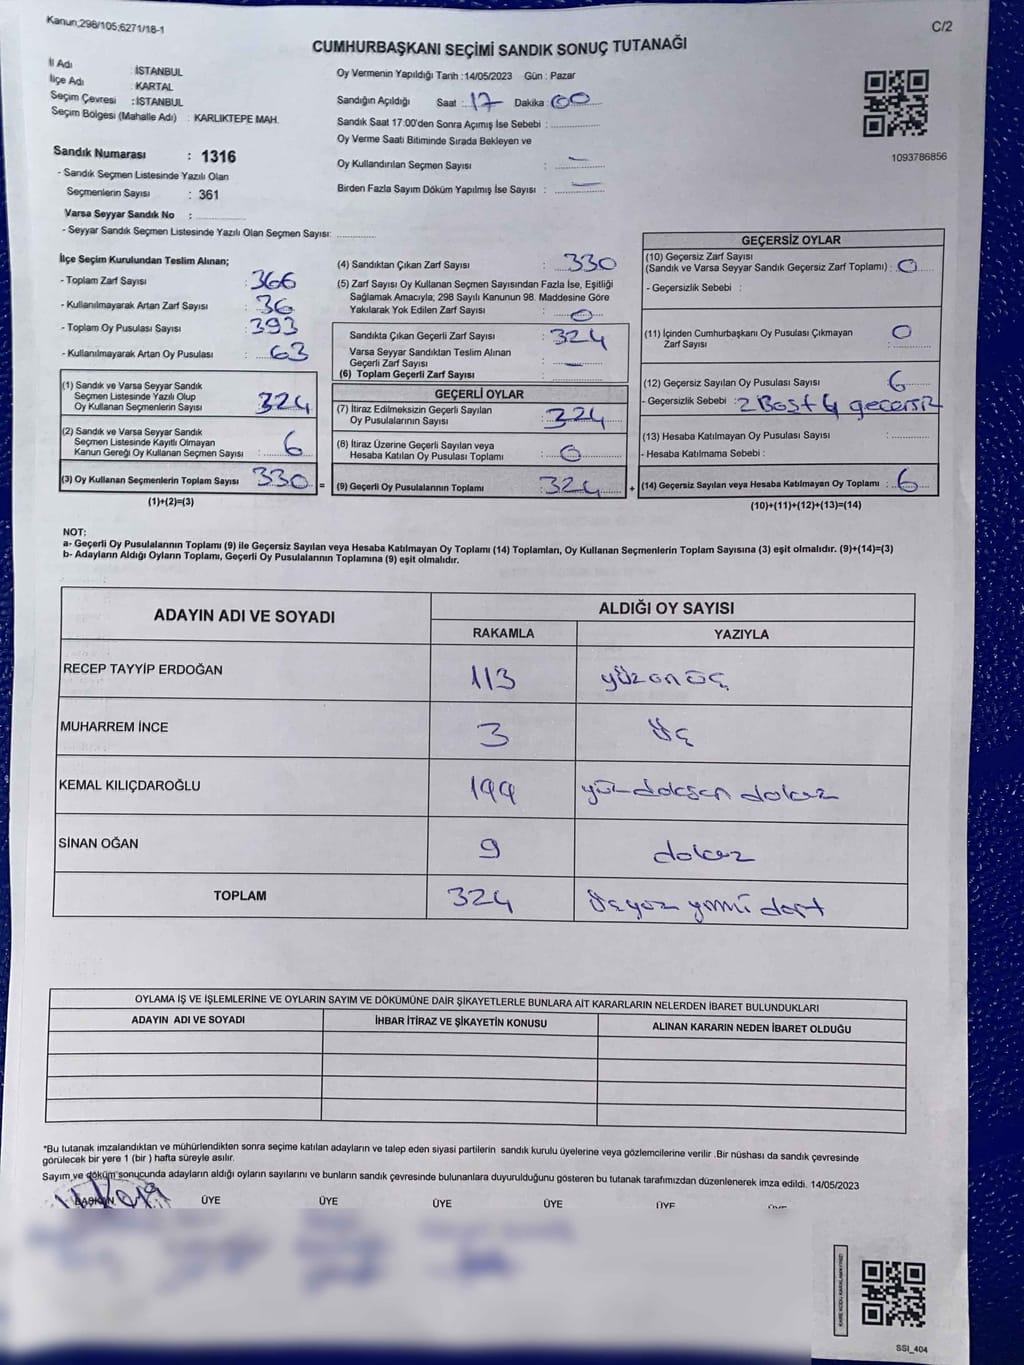 Kanun;298/105;6271/18-1
C/2
CUMHURBAŞKANI SEÇİMİ SANDIK SONUÇ TUTANAĞI
İl Adı : İSTANBUL
İlçe Adı : KARTAL
Seçim Çevresi : İSTANBUL
Seçim Bölgesi (Mahalle Adı) : KARLIKTEPE MAH.
Sandık Numarası : 1316
- Sandık Seçmen Listesinde Yazılı Olan
Seçmenlerin Sayısı : 361
Varsa Seyyar Sandık No :
- Seyyar Sandık Seçmen Listesinde Yazılı Olan Seçmen Sayısı:
Oy Vermenin Yapıldığı Tarih :14/05/2023 Gün : Pazar
Sandığın Açıldığı Saat : 17 Dakika : 00
Sandık Saat 17:00'den Sonra Açımış İse Sebebi :
Oy Verme Saati Bitiminde Sırada Bekleyen ve
Oy Kullandırılan Seçmen Sayısı : —
Birden Fazla Sayım Döküm Yapılmış İse Sayısı : —
1093786856
İlçe Seçim Kurulundan Teslim Alınan;
- Toplam Zarf Sayısı : 366
- Kullanılmayarak Artan Zarf Sayısı : 36
- Toplam Oy Pusulası Sayısı : 393
- Kullanılmayarak Artan Oy Pusulası : 63
(1) Sandık ve Varsa Seyyar Sandık
Seçmen Listesinde Yazılı Olup
Oy Kullanan Seçmenlerin Sayısı : 324
(2) Sandık ve Varsa Seyyar Sandık
Seçmen Listesinde Kayıtlı Olmayan
Kanun Gereği Oy Kullanan Seçmen Sayısı : 6
(3) Oy Kullanan Seçmenlerin Toplam Sayısı : 330 =
(1)+(2)=(3)
(4) Sandıktan Çıkan Zarf Sayısı : 330
(5) Zarf Sayısı Oy Kullanan Seçmen Sayısından Fazla İse, Eşitliği
Sağlamak Amacıyla; 298 Sayılı Kanunun 98. Maddesine Göre
Yakılarak Yok Edilen Zarf Sayısı : 0
Sandıkta Çıkan Geçerli Zarf Sayısı : 324
Varsa Seyyar Sandıktan Teslim Alınan
Geçerli Zarf Sayısı : —
(6) Toplam Geçerli Zarf Sayısı :
GEÇERLİ OYLAR
(7) İtiraz Edilmeksizin Geçerli Sayılan
Oy Pusulalarının Sayısı : 324
(8) İtiraz Üzerine Geçerli Sayılan veya
Hesaba Katılan Oy Pusulası Toplamı : 0
(9) Geçerli Oy Pusulalarının Toplamı : 324 +
GEÇERSİZ OYLAR
(10) Geçersiz Zarf Sayısı
(Sandık ve Varsa Seyyar Sandık Geçersiz Zarf Toplamı) : 0
- Geçersizlik Sebebi :
(11) İçinden Cumhurbaşkanı Oy Pusulası Çıkmayan
Zarf Sayısı : 0
(12) Geçersiz Sayılan Oy Pusulası Sayısı : 6
- Geçersizlik Sebebi : 2 Boş 4 geçersiz
(13) Hesaba Katılmayan Oy Pusulası Sayısı :
- Hesaba Katılmama Sebebi :
(14) Geçersiz Sayılan veya Hesaba Katılmayan Oy Toplamı : 6
(10)+(11)+(12)+(13)=(14)
NOT;
a- Geçerli Oy Pusulalarının Toplamı (9) ile Geçersiz Sayılan veya Hesaba Katılmayan Oy Toplamı (14) Toplamları, Oy Kullanan Seçmenlerin Toplam Sayısına (3) eşit olmalıdır. (9)+(14)=(3)
b- Adayların Aldığı Oyların Toplamı, Geçerli Oy Pusulalarının Toplamına (9) eşit olmalıdır.
ADAYIN ADI VE SOYADI
ALDIĞI OY SAYISI
RAKAMLA YAZIYLA
RECEP TAYYİP ERDOĞAN 113 yüzonüç
MUHARREM İNCE 3 üç
KEMAL KILIÇDAROĞLU 199 yüzdoksan dokuz
SİNAN OĞAN 9 dokuz
TOPLAM 324 üçyüz yirmi dört
OYLAMA İŞ VE İŞLEMLERİNE VE OYLARIN SAYIM VE DÖKÜMÜNE DAİR ŞİKAYETLERLE BUNLARA AİT KARARLARIN NELERDEN İBARET BULUNDUKLARI
ADAYIN ADI VE SOYADI İHBAR İTİRAZ VE ŞİKAYETİN KONUSU ALINAN KARARIN NEDEN İBARET OLDUĞU
*Bu tutanak imzalandıktan ve mühürlendikten sonra seçime katılan adayların ve talep eden siyasi partilerin sandık kurulu üyelerine veya gözlemcilerine verilir .Bir nüshası da sandık çevresinde
görülecek bir yere 1 (bir ) hafta süreyle asılır.
Sayım ve döküm sonucunda adayların aldığı oyların sayılarını ve bunların sandık çevresinde bulunanlara duyurulduğunu gösteren bu tutanak tarafımızdan düzenlenerek imza edildi. 14/05/2023
BAŞKAN ÜYE ÜYE ÜYE ÜYE ÜYE
SSI_404